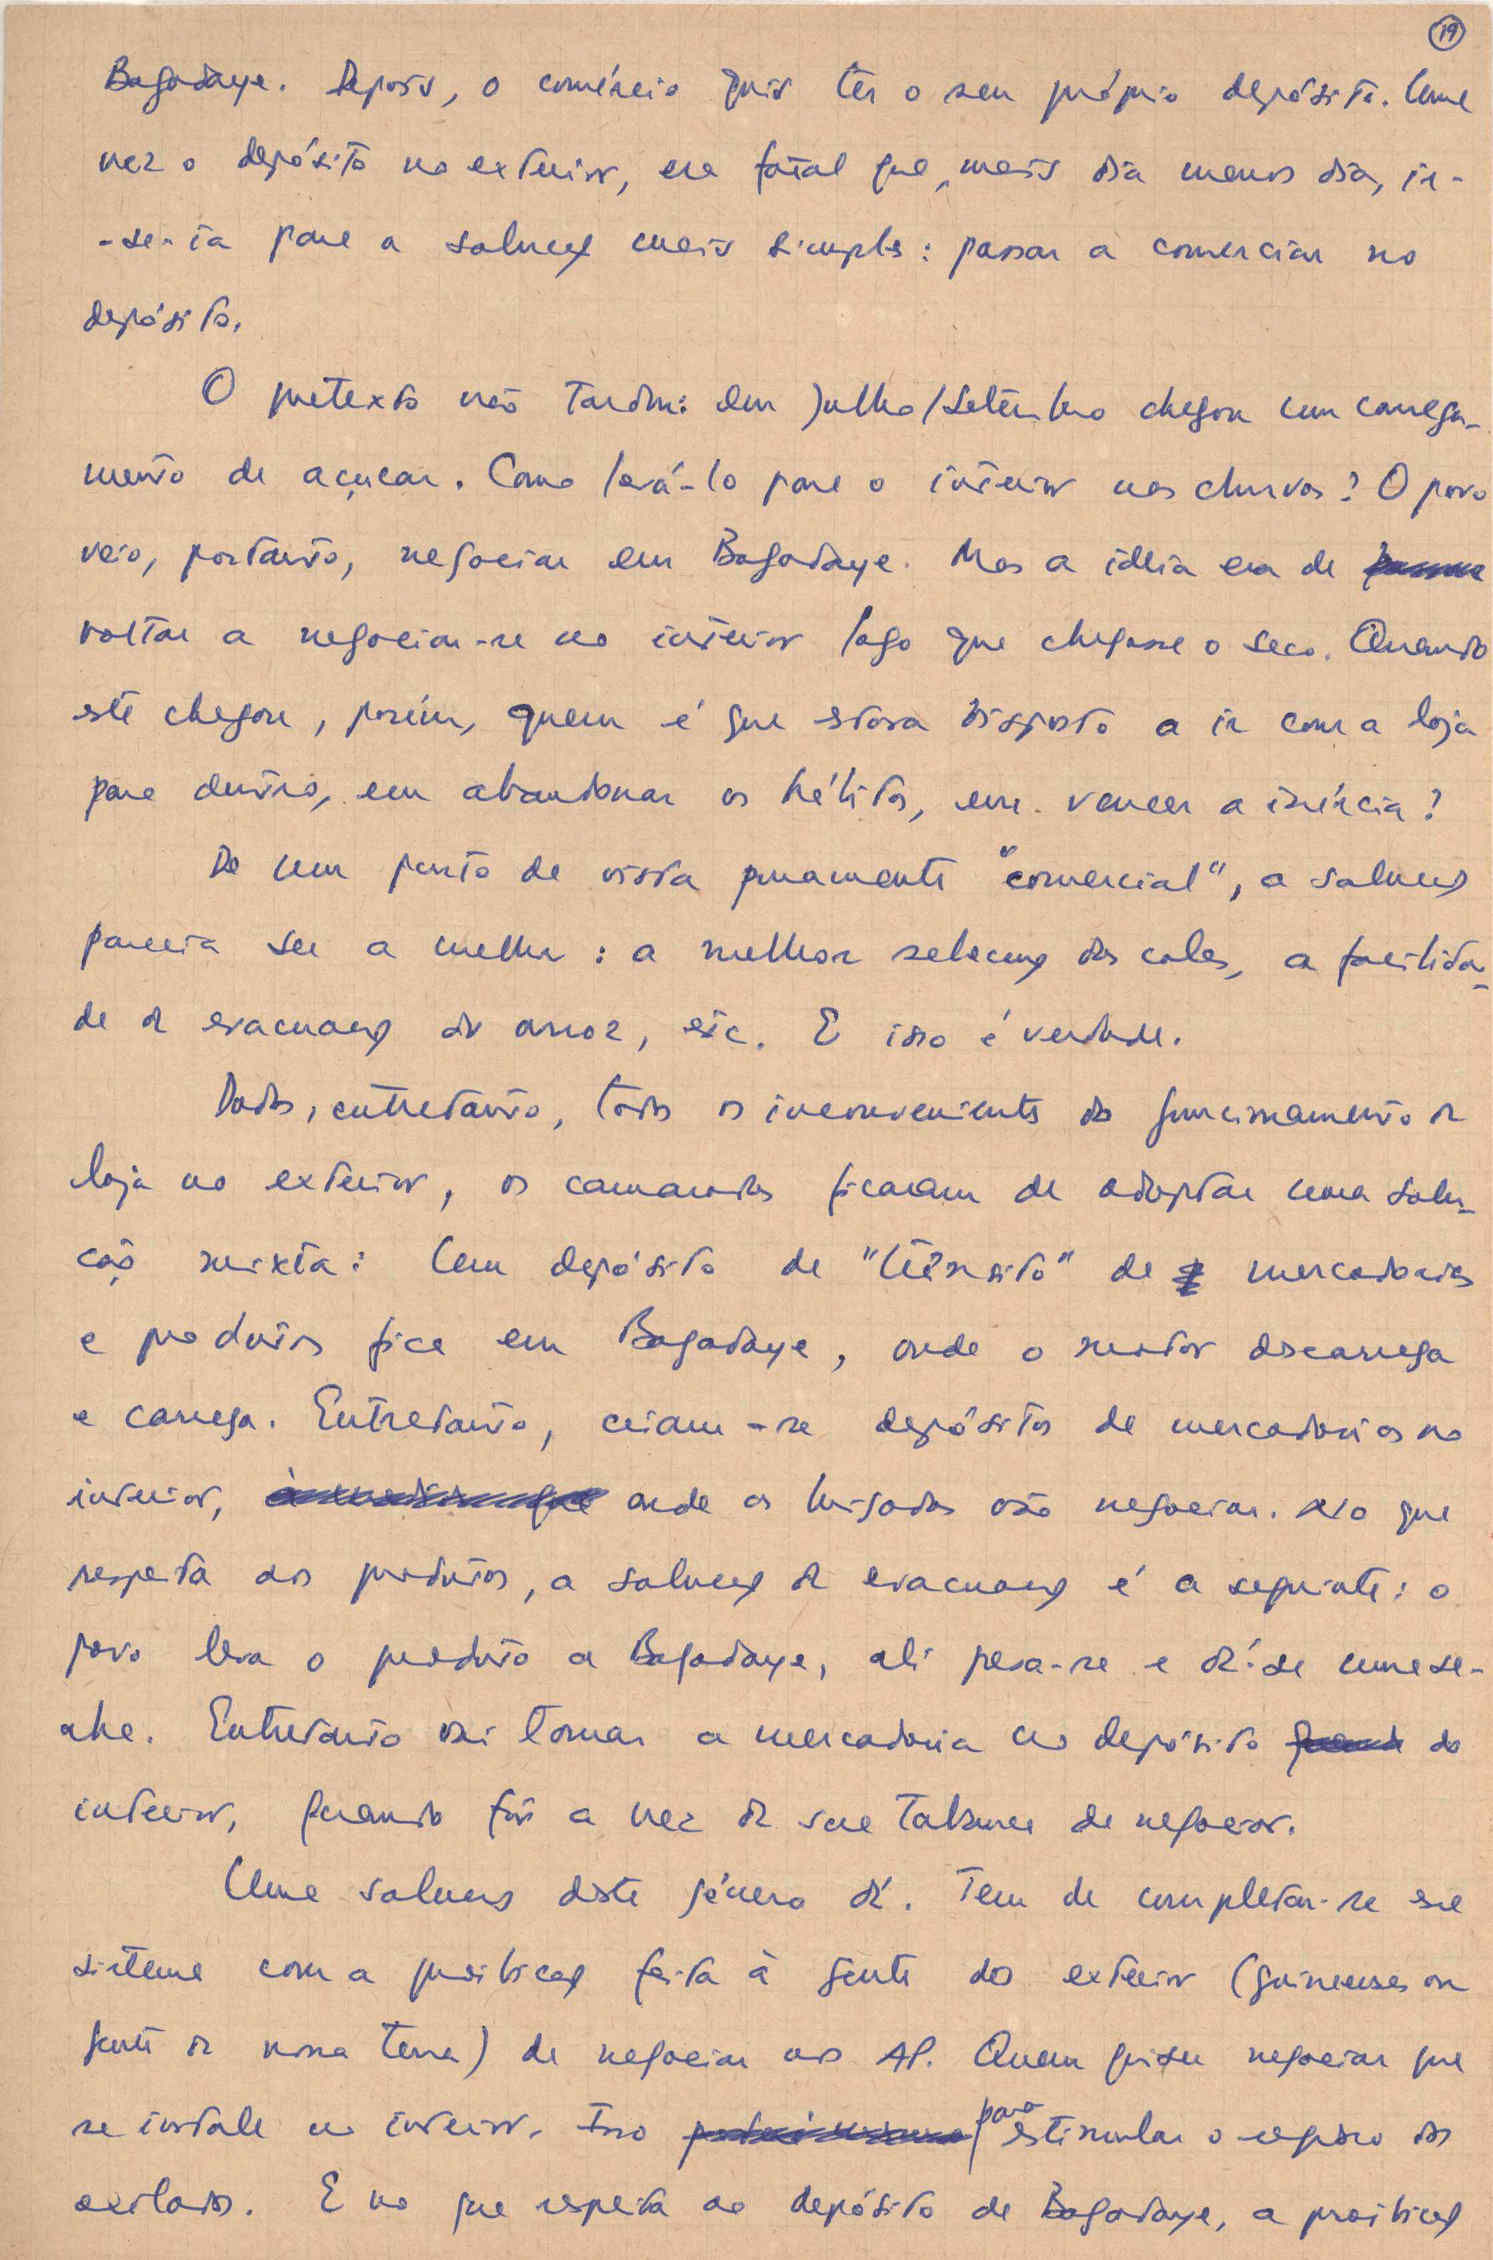 19
Bagadaye. Depois, o comércio quis ter o seu próprio depósito. Uma
vez o depósito no exterior, era fatal que, mais dia menos dia, ir-
-se-ia para a solução mais simples: passar a comerciar no
depósito.
O pretexto não tardou: em Julho/Setembro chegou um carrega-
mento de açúcar. Como levá-lo para o interior nas chuvas? O povo
veio, portanto, negociar em Bagadaye. Mas a ideia era de
voltar a negociar-se no interior logo que chegasse o seco. Quando
este chegou, porém, quem é que estava disposto a ir com a loja
para dentro, em abandonar os hábitos, em vencer a inércia?
De um ponto de vista puramente "comercial", a solução
parecia ser a melhor: a melhor selecção das colas, a facilida-
de da evacuação do arroz, etc. E isso é verdade.
Dados, entretanto, todos os inconvenientes do funcionamento da
loja no exterior, os camaradas ficaram de adoptar uma solu-
ção mixta: Um depósito de "trânsito" de mercadorias
e produtos fica em Bagadaye, onde o motor descarrega
e carrega. Entretanto, criam-se depósitos de mercadorias no
interior, onde as brigadas vão negociar. No que
respeita aos produtos, a solução da evacuação é a seguinte: o
povo leva o produto a Bagadaye, ali pesa-se e dá-se uma se-
nha. Entretanto vai tomar a mercadoria no depósito do
interior, quando fôr a vez da sua tabanca de negociar.
Uma solução deste género dá. Tem de completar-se esse
sistema com a proibição feita à gente do exterior (guineenses ou
gente da nossa terra) de negociar nos AP. Quem quiser negociar que
se instale no interior. Isso para estimular o regresso dos
exilados. E no que respeita ao depósito de Bagadaye, a proibição